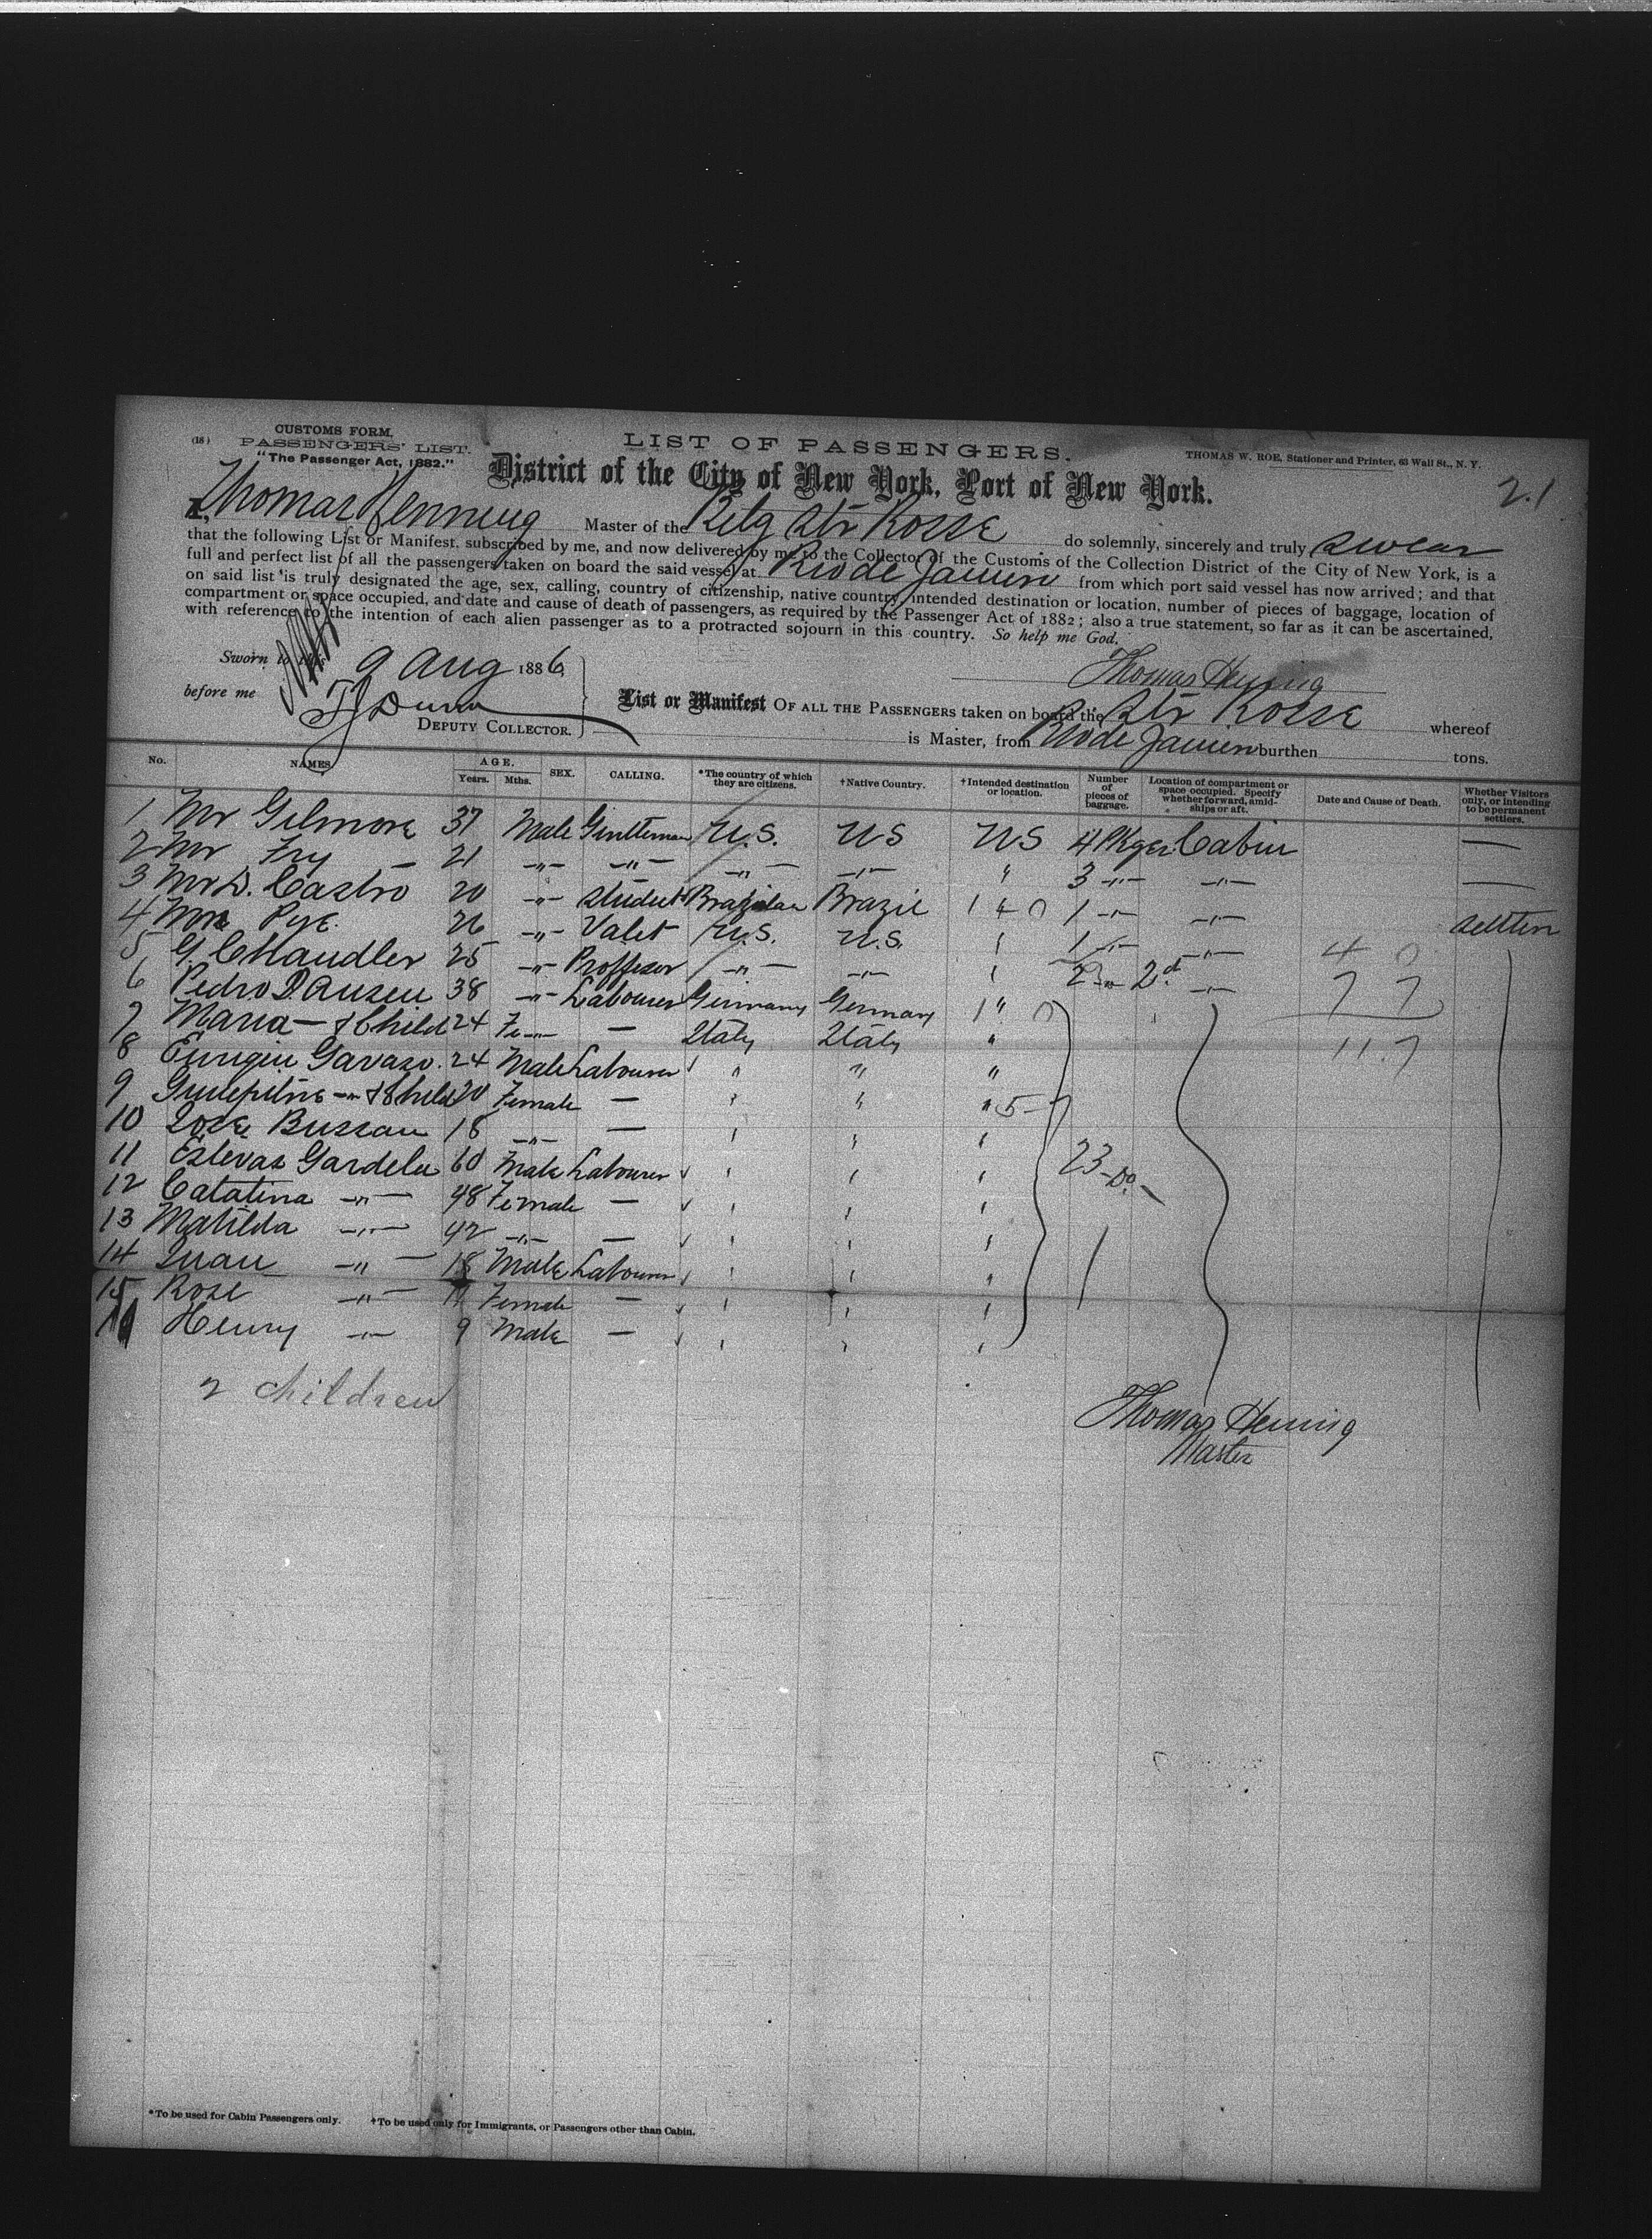 (18) CUSTOMS FORM,
PASSENGERS' LIST.
"The Passenger Act, 1882."
LIST OF PASSENGERS.
THOMAS W. ROE, Stationer and Printer, 63 Wall St., N. Y.
District of the City of New York, Port of New York.
2.1
I, Thomas Henning Master of the Belg Str Rosse do solemnly, sincerely and truly swear
that the following List or Manifest, subscribed by me, and now delivered by me to the Collector of the Customs of the Collection District of the City of New York, is a
full and perfect list of all the passengers taken on board the said vessel at Rio de Janiero from which port said vessel has now arrived; and that
on said list is truly designated the age, sex, calling, country of citizenship, native country, intended destination or location, number of pieces of baggage, location of
compartment or space occupied, and date and cause of death of passengers, as required by the Passenger Act of 1882; also a true statement, so far as it can be ascertained,
with reference to the intention of each alien passenger as to a protracted sojourn in this country. So help me God.
Sworn to this 9 Aug 1886
Thomas Hening
before me
Dunn
DEPUTY COLLECTOR.
List or Manifest OF ALL THE PASSENGERS taken on board the Str Rosse whereof
is Master, from Rio de Janiero burthen tons.
No. NAMES. AGE. Years. Mths. SEX. CALLING. *The country of which they are citizens. †Native Country. †Intended destination or location. Number of pieces of baggage. Location of compartment or space occupied. Specify whether forward, amidships or aft. Date and Cause of Death. Whether Visitors only, or intending to be permanent settlers.
1 Mr Gilmore 37 Male Gentleman U.S. US US 4 Pkges Cabin —
2 Mr Fry — 21 -"- -"- -"- -"- " 3 -"- -"- —
3 Mr D. Castro 20 -"- Student Brazilian Brazil 1 4 0 1 -"- -"- settler
4 Pye 26 -"- Valet U.S. U.S. " 1 -"- -"- 4 0
5 G. Chandler 25 -"- Proffesor -"- -"- " 2 -"- 2d -"- 7 7
6 Pedro D. 38 -"- Labourer Germany Germany 1 " 0
7 Maria — & Child 24 Fe — Italy Italy " 11.7
8 Gavaso. 24 Male Labourer " " "
9 -"- & Child 20 Female — " " " 5-7
10 Bussau 18 -"- — " " "
11 Estevas Gardela 60 Male Labourer " " " 23 - Do.
12 Catatina -"- 48 Female — " " "
13 Matilda -"- 42 -"- — " " "
14 Juan -"- 18 Male Labourer " " "
15 Rose -"- Female — " " "
Henry -"- 9 Male — " " "
2 children
Thomas Hening
Master
*To be used for Cabin Passengers only. †To be used only for Immigrants, or Passengers other than Cabin.